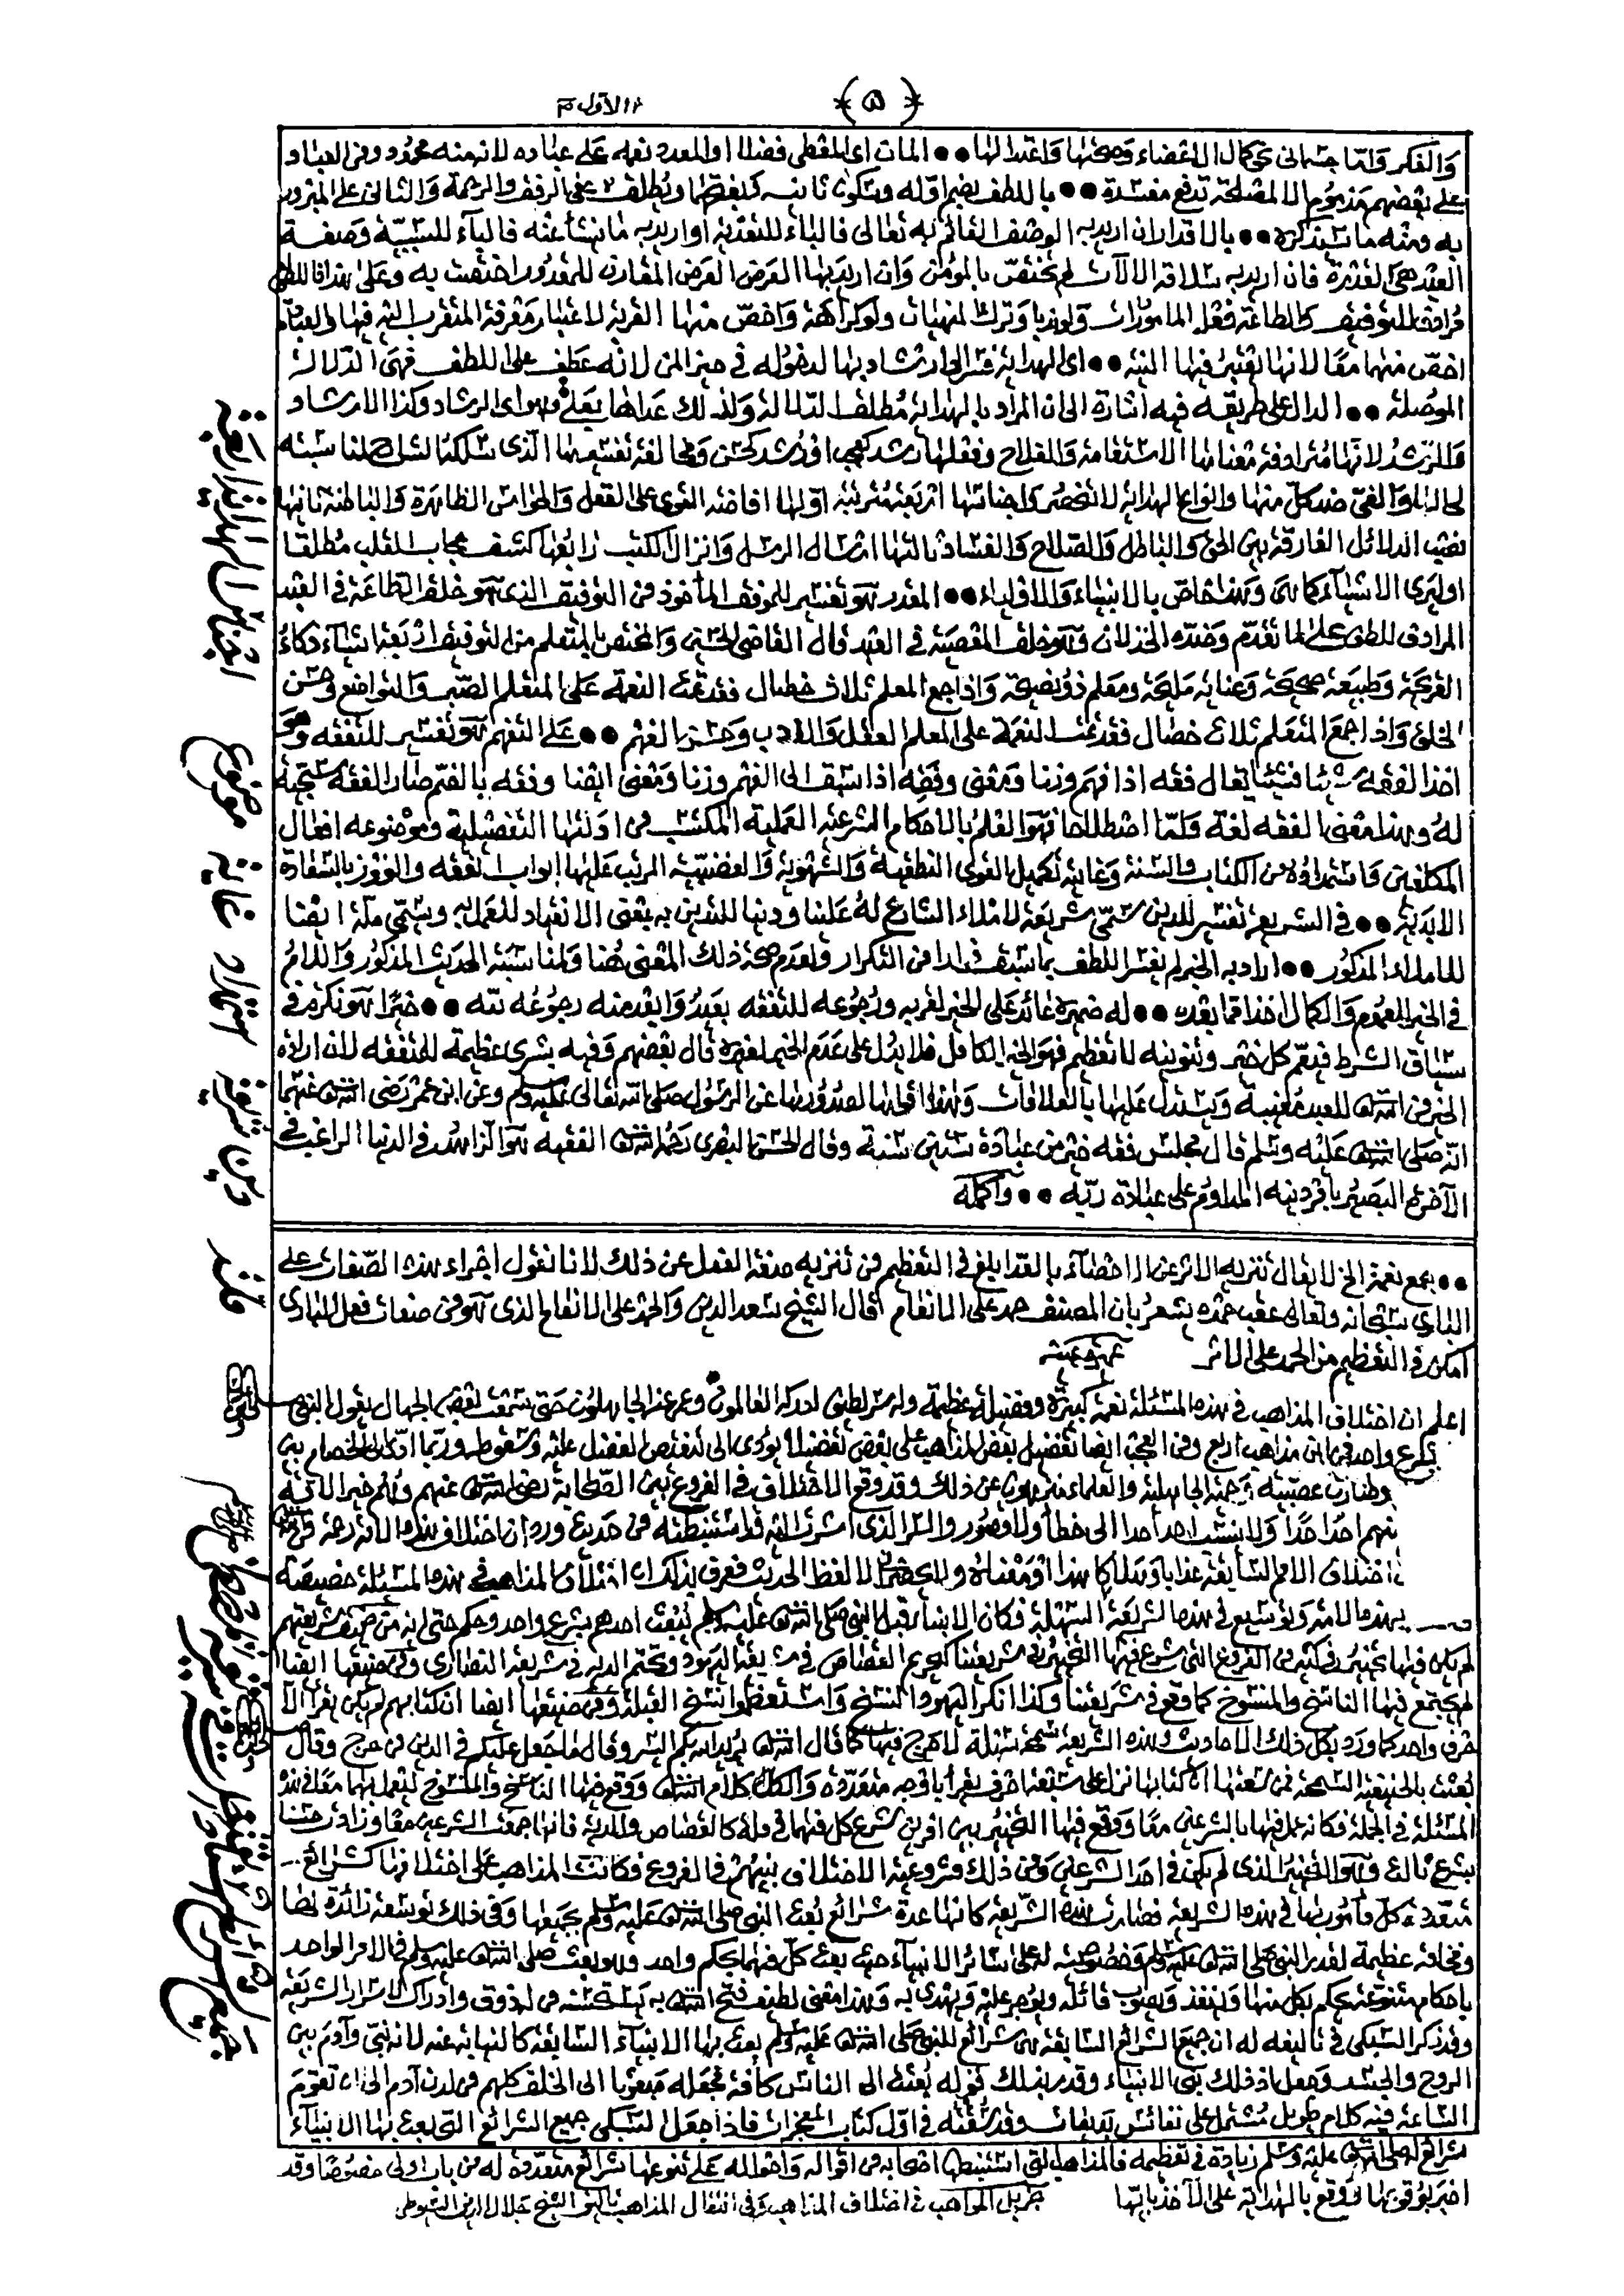 ﴿٥﴾
والفكر واما جسمانى نحو كمال الاعضاء وصحتها واعتدالها •• المان اى المقطى فضلا او المعدد نعمه على عباده لانه منه محمود ومن العباد
على بعضهم مذموم الا لمصلحة تدفع مفسدة •• باللطف بضم اوله وسكون ثانيه كبفتحهما ويطلق على الرفق والرحمة والثانى على المبرور
به ومنه ما سيذكره •• بالاقدار ان اريد به الوصف القائم به تعالى فالباء للتعدية او اريد به ما ينشأ عنه فالباء للسببية وصفة
العبد هى القدرة فان اريد به سلاقة الآلات لم تختص بالمؤمن وان اريد بها العرض المقارن للمقدور اختصت به وعلى هذا فاللطف
مرادف للتوفيق كالطاعة فعل المامورات ولو ندبا وترك المنهيات ولو كراهة واخص منها القربة لاعتبار معرفة المتقرب اليه فيها والعبادة
اخص منهما معا لانها يعتبر فيها النية •• اى الهداية فسر الارشاد بها لدخوله فى حيز المن لانه عطف على اللطف فهى الدلالة
الموصلة •• الدال على طريقه فيه اشارة الى ان المراد بالهداية مطلق الدلالة ولذلك عداها بعلى وهو اى الرشاد وكذا الارشاد
والرشد لانها مترادفة معناها الاستقامة والفلاح وفعلها رشد كعجب او رشد كحسن
الغى ضد كل منها وانواع الهداية لا تنحصر واجناسها اربعة مترتبة اولها افاضة القوى على العقل والحواس الظاهرة والباطنة ثانيها
نصب الدلائل الفارقة بين الحق والباطل والصلاح والفساد ثالثها ارسال الرسل وانزال الكتب رابعها كشف حجاب القلب مطلقا
او ليرى الاشياء كما هى وهذا خاص بالانبياء والاولياء •• المقدر هو تفسير للموفق المأخوذ من التوفيق الذى هو خلق الطاعة فى العبد
المرادف للطف على ما تقدم وضده الخذلان وهو خلق المعصية فى العبد قال القاضى الحسين والمختص بالمتعلم من التوفيق اربعة اشياء ذكاء
القريحة وطبيعة صحيحة وعناية مليحة ومعلم ذو نصيحة واذا جمع المعلم ثلاث خصال فقد تمت النعمة على المتعلم الصبر والتواضع وحسن
الخلق واذا جمع المتعلم ثلاث خصال فقد تمت النعمة على المعلم العقل والادب وحسن الفهم •• على التفهم هو تفسير للتفقه وهو
اخذ الفقه شيئا فشيئا يقال فقه اذا فهم وزنا ومعنى وفقه اذا سبق الى الفهم وزنا ومعنى ايضا وفقه بالضم صار الفقه سجية
له وهذا معنى الفقه لغة واما اصطلاحا فهو العلم بالاحكام الشرعية العملية المكتسب من ادلتها التفصيلية وموضوعه افعال
المكلفين واستمداده من الكتاب والسنة وغايته تكميل القوى النطقية والشهوية والغضبية المرتب عليها ابواب الفقه والفوز بالسعادة
الابدية •• فى الشريعة تفسير للدين سمى شريعة لاملاء الشارع له علينا ودينا للتدين به بمعنى الانقياد للعمل به ويسمى ملة ايضا
للاملاء المذكور •• اراد به الخير لم يفسر اللطف بما سبق فرارا من التكرار ولعدم صحة ذلك المعنى هنا ولمناسبة الحديث المذكور واللام
فى الخير للعموم والكمال اخذا مما بعده •• له ضميره عائد على الخير لقربه ورجوعه للتفقه بعيد وابعد منه رجوعه لله •• خيرا هو نكرة فى
سياق الشرط فيعم كل خير وتنوينه للتعظيم فهو الخير الكامل فلا يدل على عدم الخير لغيره قال بعضهم وفيه بشرى عظيمة للمتفقه لان ارادة
الخير من الله للعبد مغيبة ويستدل عليها بالعلامات وهذا اقواها لصدورها عن الرسول صلى الله تعالى عليه وسلم وعن ابن عمر رضى الله عنهما
انه صلى الله عليه وسلم قال مجلس فقه خير من عبادة ستين سنة وقال الحسن البصرى رحمه الله الفقيه هو الزاهد فى الدنيا الراغب فى
الآخرة البصير بامر دينه المداوم على عبادة ربه •• واكمله
•• بجمع نعمة الخ لا يقال تنزيه الاثر عن الاحصاء بالعد ابلغ فى التعظيم من تنزيه صفة الفعل عن ذلك لانا نقول اجراء هذه الصفات على
البارى سبحانه وتعالى عقب حمده يشعر بان المصنف حمد على الانعام قال الشيخ سعد الدين والحمد على الانعام الذى هو من صفات فعل البارى
امكن فى التعظيم من الحمد على الاثر
اعلم ان اختلاف المذاهب فى هذه المسئلة نعمة كبيرة وفضيلة عظيمة وله سر لطيف ادركه العالمون وعمى عنه الجاهلون حتى سمعت بعض الجهال يقول النبى
بشرع واحد فمن اين مذاهب اربع ومن العجب ايضا تفضيل بعض المذاهب على بعض تفضيلا يؤدى الى تنقيص المفضل عليه وسقوطه وربما ادى الى الخصام بين
وصارت عصبية وحمية الجاهلية والعلماء منزهون عن ذلك وقد وقع الاختلاف فى الفروع بين الصحابة رضى الله عنهم وهم خير الامة
منهم احدا ولا ينسب احد احدا الى خطأ ولا قصور والسر الذى اشرت اليه قد استنبطته من حديث ورد ان اختلاف هذه الامة رحمة
اختلاف الامم السابقة عذابا وهلاكا هذا او معناه لا لفظ الحديث فعرف بذلك ان اختلاف المذاهب فى هذه المسئلة خصيصة
بهذه الامة وتوسيع فى هذه الشريعة السهلة فكان الانبياء قبل النبى صلى الله عليه وسلم يبعث احدهم بشرع واحد وحكم حتى انه من ضيق شريعتهم
لم يكن فيها تخيير فى كثير من الفروع التى شرع فيها التخيير فى شريعتنا كتحريم القصاص فى شريعة اليهود وتحتم الدية فى شريعة النصارى ومن ضيقها ايضا
لم يجتمع فيها الناسخ والمنسوخ كما وقع فى شريعتنا وكذا انكر اليهود النسخ واستعظموا نسخ القبلة ومن ضيقها ايضا ان كتابهم لم يكن يقرأ الا
حرف واحد كما ورد بكل ذلك الاحاديث وهذه الشريعة سمحة سهلة لا حرج فيها كما قال الله يريد الله بكم اليسر وقال ما جعل عليكم فى الدين من حرج وقال
بعثت بالحنيفية السمحة فمن سعتها ان كتابها نزل على سبعة احرف يقرأ باوجه متعددة والكل كلام الله ووقع فيها الناسخ والمنسوخ ليعمل بهما معا فى هذه
المسئلة فى الجملة فكانه عمل فيها بالشرعين معا ووقع فيها التخيير بين امرين شرع كل منهما فى ملة كالقصاص والدية فانها جمعت الشرعين معا وزادت حسنا
بشرع ثالث وهو التخيير الذى لم يكن فى احد الشرعين ومن ذلك مشروعية الاختلاف بينهم فى الفروع فكانت المذاهب على اختلافها كشرائع
متعددة كل مأمور بها فى هذه الشريعة فصارت هذه الشريعة كانها عدة شرائع بعث النبى صلى الله عليه وسلم بجميعها وفى ذلك توسعة زائدة لها
وفخامة عظيمة لقدر النبى صلى الله عليه وسلم وخصوصية له على سائر الانبياء حيث بعث كل منهم بحكم واحد وهو بعث صلى الله عليه وسلم فى الامر الواحد
باحكام متنوعة يحكم بكل منها وينفذ ويصوب قائله ويؤجر عليه ويهدى به وهذا معنى لطيف فتح الله به يستحسنه من له ذوق وادراك لاسرار الشريعة
وقد ذكر السبكى فى تاليفه له ان جميع الشرائع السابقة هى شرائع للنبى صلى الله عليه وسلم بعث بها الانبياء السابقة كالنيابة عنه لانه نبى وآدم بين
الروح والجسد وجعل اذ ذلك نبى الانبياء وقدر بذلك قوله بعثت الى الناس كافة فجعله مبعوثا الى الخلق كلهم من لدن آدم الى ان تقوم
الساعة فيه كلام طويل مشتمل على نفائس بديعات وقد سقته فى اول كتاب المعجزات فاذا جعل السبكى جميع الشرائع التى بعث بها الانبياء
شرائع له صلى الله عليه وسلم زيادة فى تعظيمه فالمذاهب التى استنبطها اصحابه من اقواله وافعاله على تنوعها شرائع متعددة له من باب اولى خصوصا وقد
اخبر بوقوعها ووقع بالهداية على الآخذ بها جزيل المواهب فى اختلاف المذاهب وفى انتقال المذاهب الشيخ جلال الدين السيوطى
اجناس الهداية اربعة
موضوع
غاية
استمداد
دين شريعة
ملة